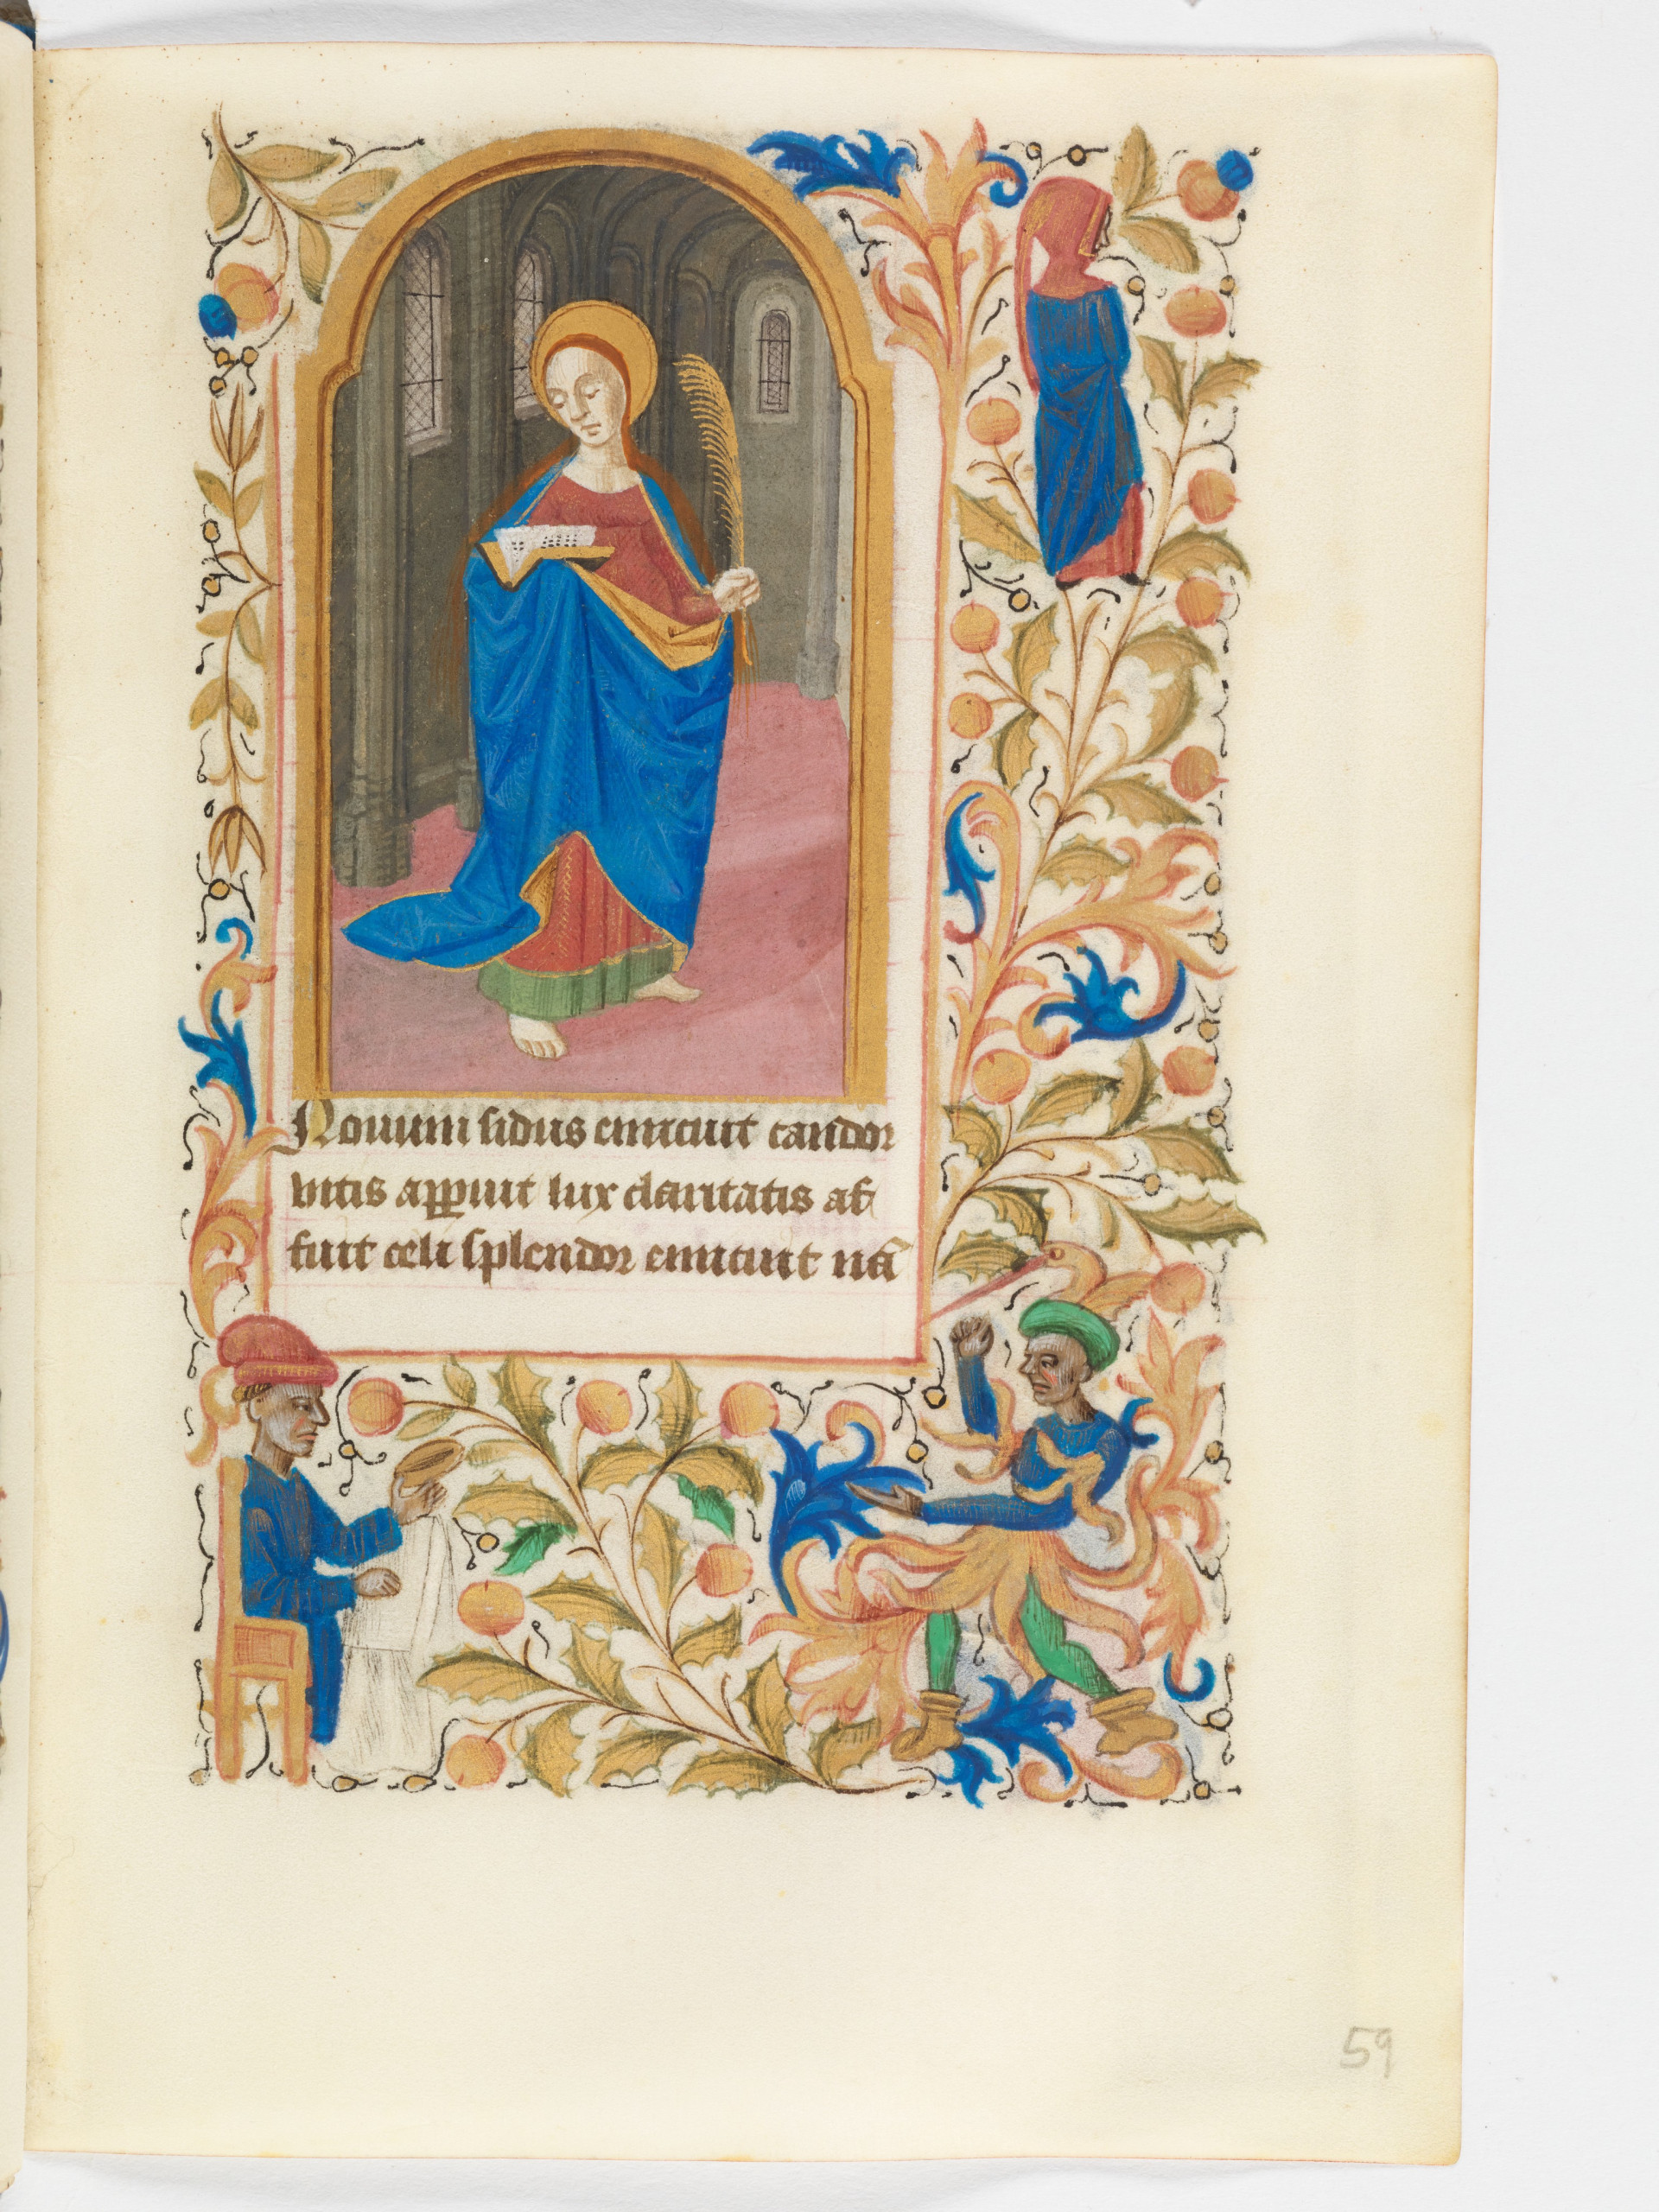 Nouum sidus emicuit candor
vitis apparuit lux claritatis af
fuit celi splendor enituit nr̄a
59